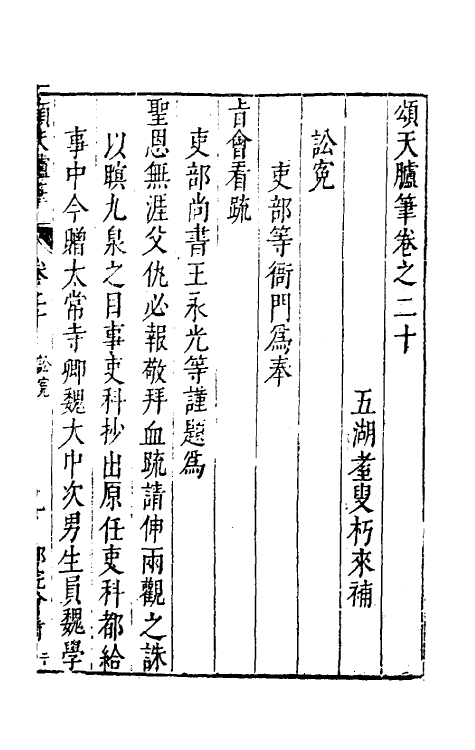 頌天臚筆卷之二十
五湖耋叟朽來補
訟寃
吏部等衙門爲奉
旨會看疏
吏部尚書王永光等謹題爲
聖恩無涯父仇必報敬拜血疏請伸兩觀之誅
以瞑九泉之目事吏科抄出原任吏科都給
事中今贈太常寺卿魏大中次男生員魏學
頌天臚筆 卷二十 訟寃